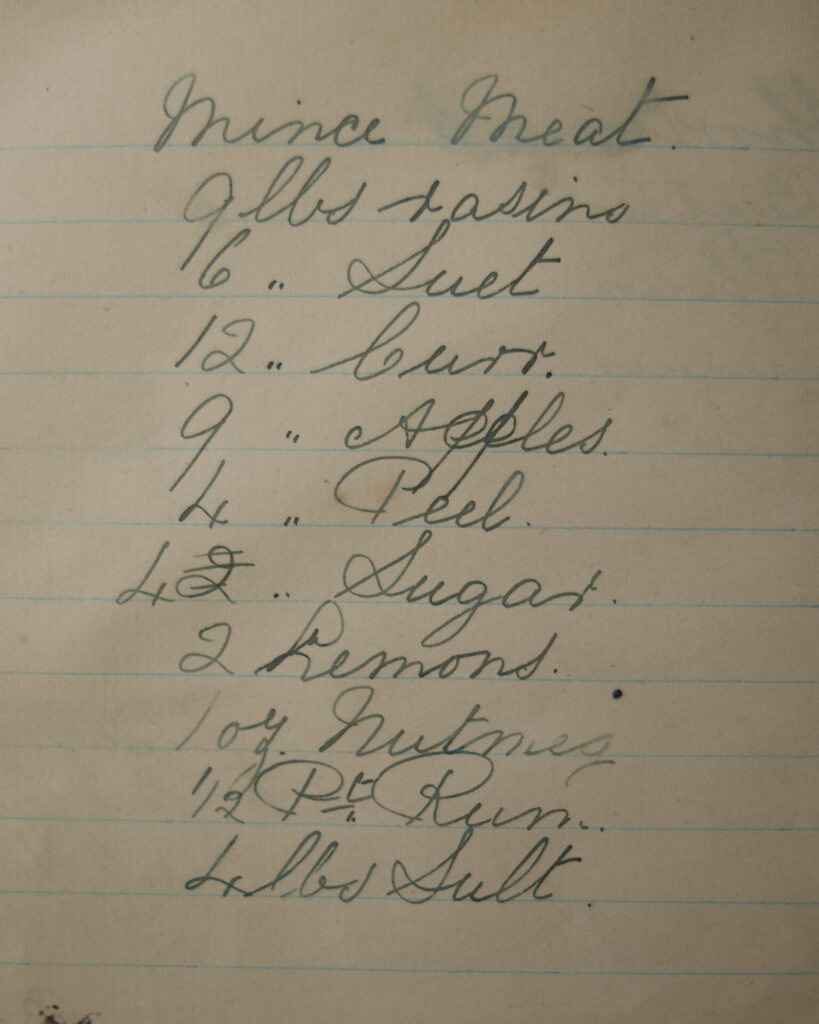 Mince Meat.
9 lbs rasins
6 " Suet
12 " Curr.
9 " Apples.
4 " Peel.
4 " Sugar.
2 Lemons.
1 oz. Nutmeg
1/2 Pt Rum.
4 lbs Sult.